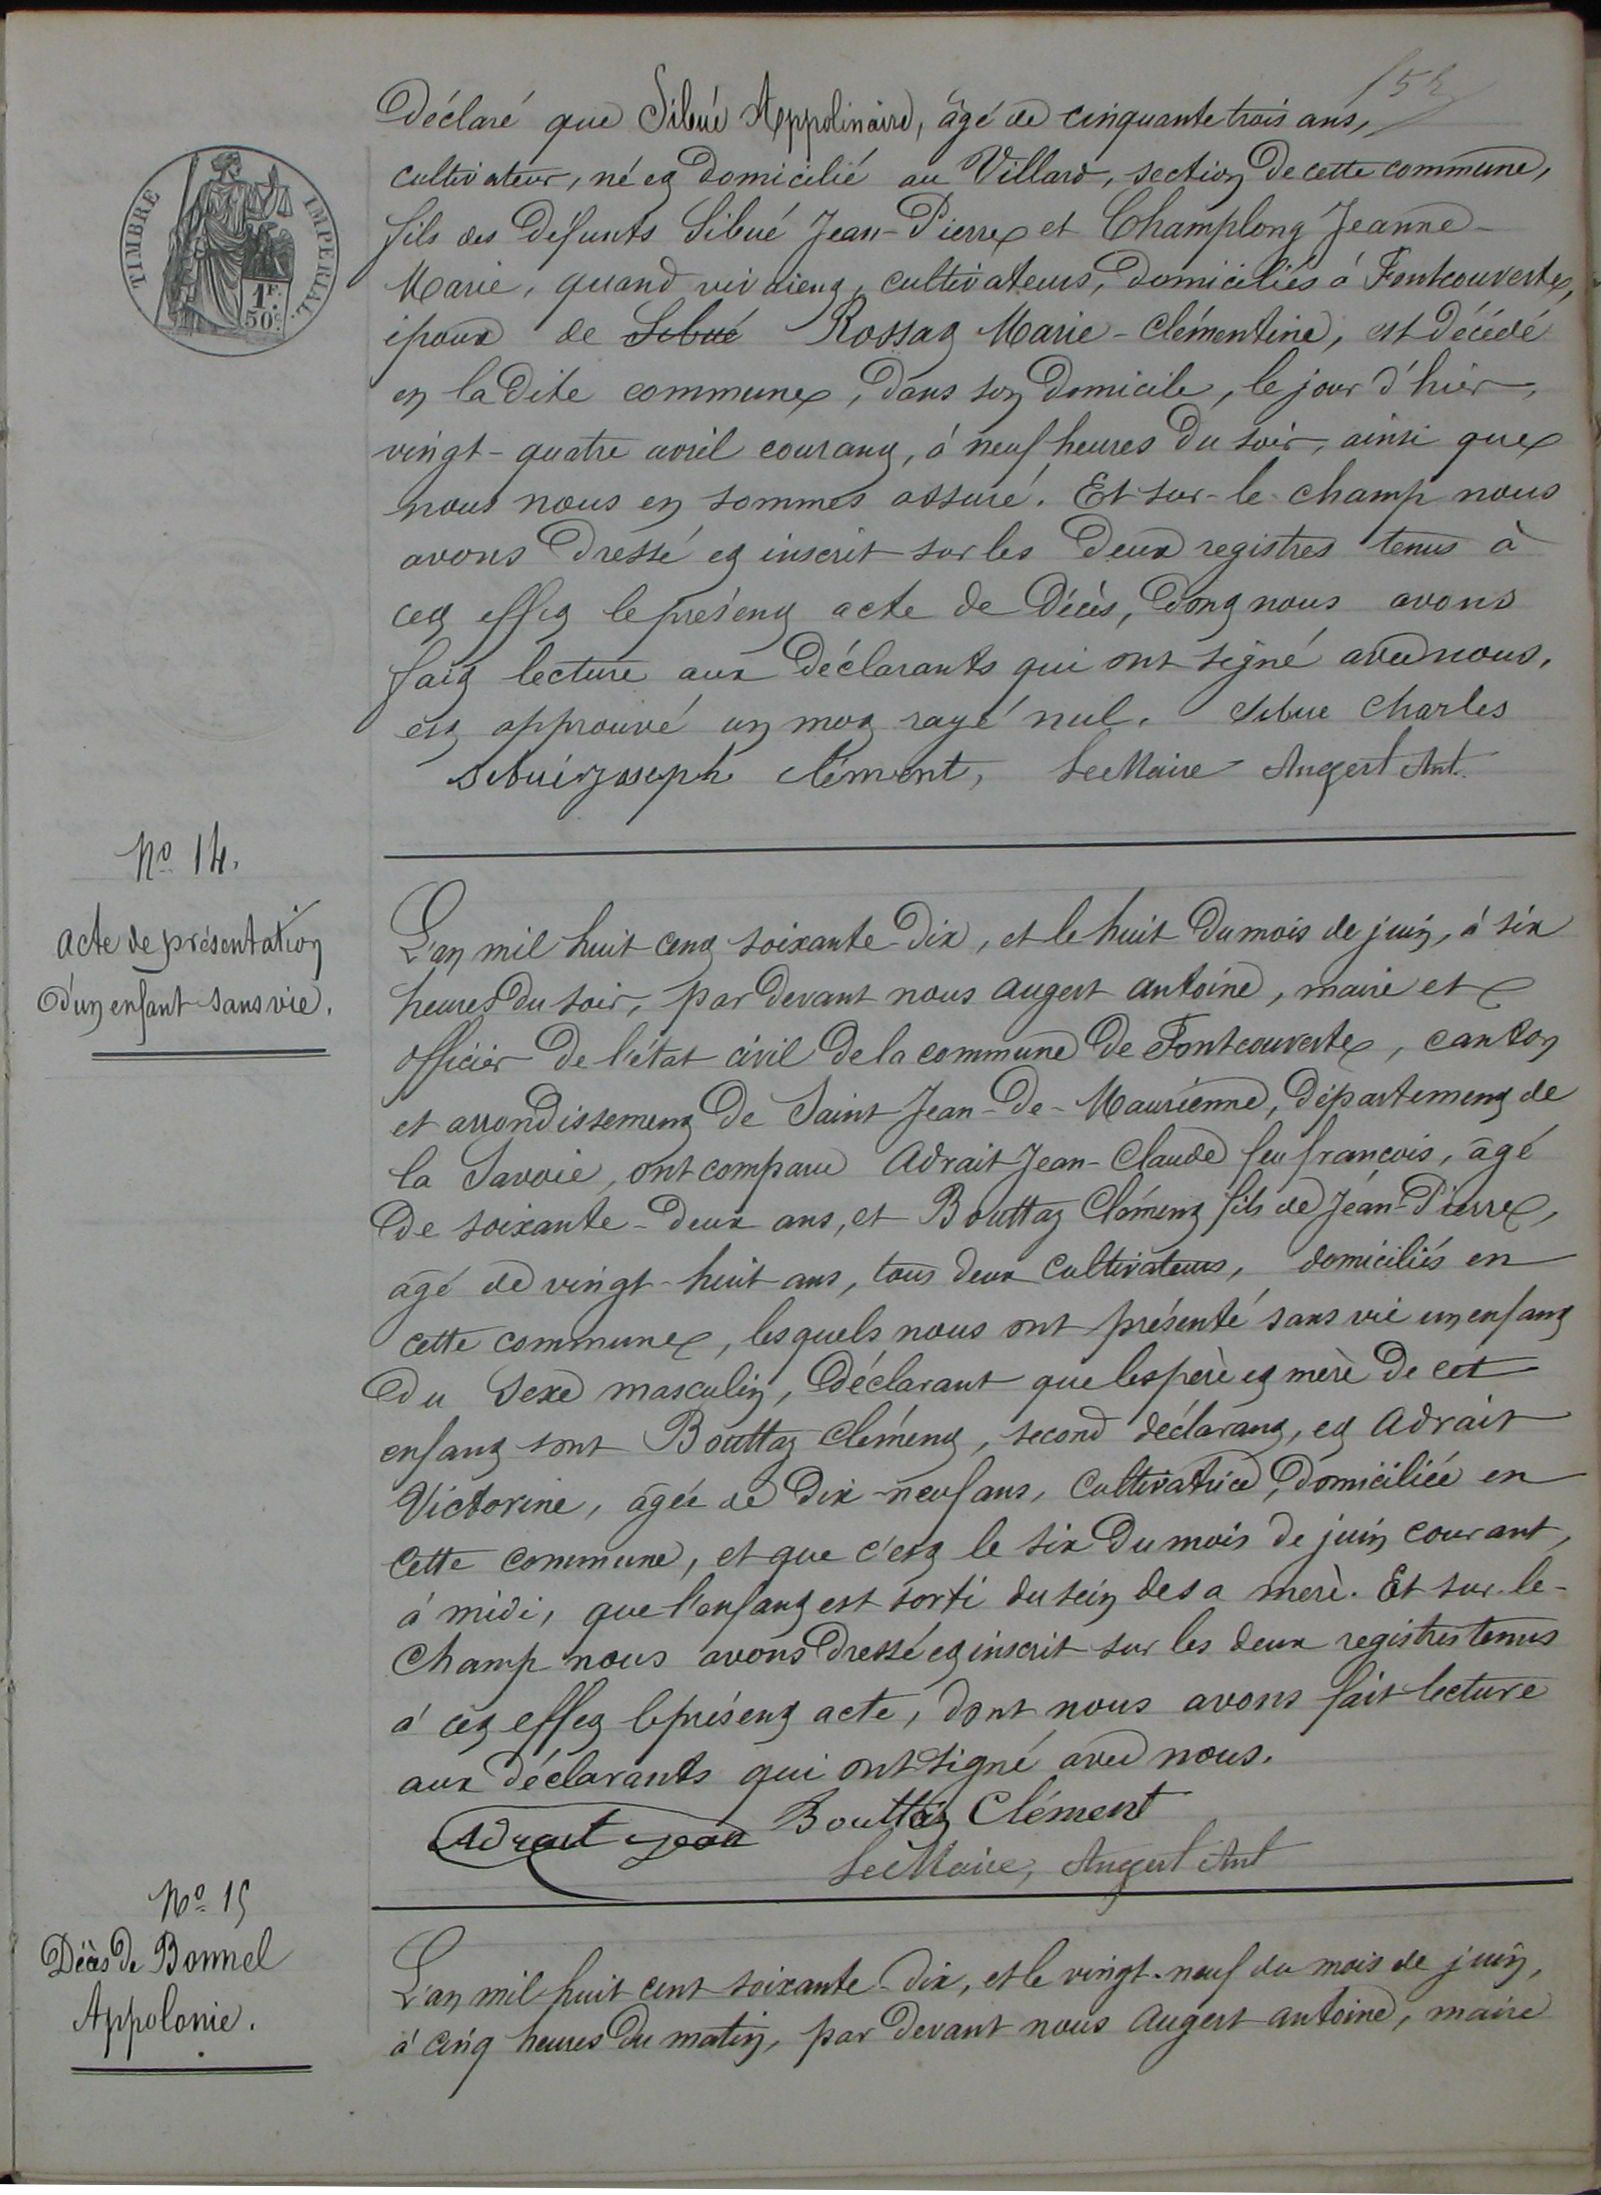 Déclaré que Sibué Appolinaire, âgé de cinquante trois ans,
cultivateur, né et domicilié au Villard, section de cette commune,
fils des défunts Sibué Jean-Pierre et Champlong Jeanne-
Marie, quand vivaient, cultivateurs, domiciliés à Fontcouverte,
époux de Sibué Rossat Marie-Clémentine, est décédé
en la dite commune, dans son domicile, le jour d'hier,
vingt-quatre avril courant, à neuf heures du soir, ainsi que
nous nous en sommes assuré. Et sur-le-champ nous
avons dressé et inscrit sur les deux registres tenus à
cet effet le présent acte de décès, dont nous avons
fait lecture aux déclarants qui ont signé avec nous.
est approuvé un mot rayé nul. Sibue Charles
Sibué Joseph clément, Le Maire Augert Ant.
TIMBRE IMPERIAL.
1F.
50c.
No 14.
acte de présentation
d'un enfant sans vie.
L'an mil huit cent soixante-dix, et le huit du mois de juin, à six
heures du soir, par devant nous augert antoine, maire et
officier de l'état civil de la commune de Fontcouverte, canton
et arrondissement de Saint Jean-de-Maurienne, département de
la Savoie, ont comparu Adrait Jean-Claude feu francois, âgé
de soixante-deux ans, et Bouttaz Clément fils de Jean-Pierre,
âgé de vingt-huit ans, tous deux cultivateurs, domiciliés en
cette commune, lesquels nous ont présenté sans vie un enfant
du sexe masculin, déclarant que les père et mère de cet
enfant sont Bouttaz Clément, second déclarant, et Adrait
Victorine, âgée de dix-neuf ans, cultivatrice, domiciliée en
cette commune, et que c'est le six du mois de juin courant,
à midi, que l'enfant est sorti du sein de sa mère. Et sur-le-
champ nous avons dressé et inscrit sur les deux registres tenus
à cet effet le présent acte, dont nous avons fait lecture
aux déclarants qui ont signé avec nous.
Adrait Jean Bouttaz Clément
Le Maire, Augert Ant
No 15
Décès de Bonnel
Appolonie.
L'an mil huit cent soixante-dix, et le vingt-neuf du mois de juin,
à cinq heures du matin, par devant nous augert antoine, maire